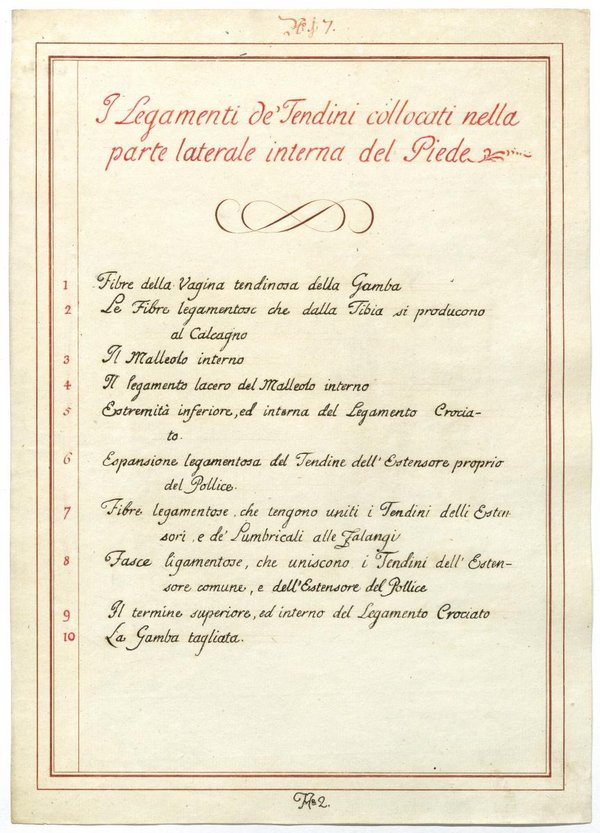 I Legamenti de' Tendini collocati nella
parte laterale interna del Piede
1 Fibre della Vagina tendinosa della Gamba
2 Le Fibre legamentose che dalla Tibia si producono
al Calcagno
3 Il Malleolo interno
4 Il legamento lacero del Malleolo interno
5 Estremità inferiore, ed interna del Legamento Crocia-
to.
6 Espansione legamentosa del Tendine dell' Estensore proprio
del Pollice.
7 Fibre legamentose, che tengono uniti i Tendini delli Esten-
sori, e de' Lumbricali alle Falangi
8 Fasce ligamentose, che uniscono i Tendini dell' Esten-
sore comune, e dell'Estensore del Pollice
9 Il termine superiore, ed interno del Legamento Crociato
10 La Gamba tagliata.